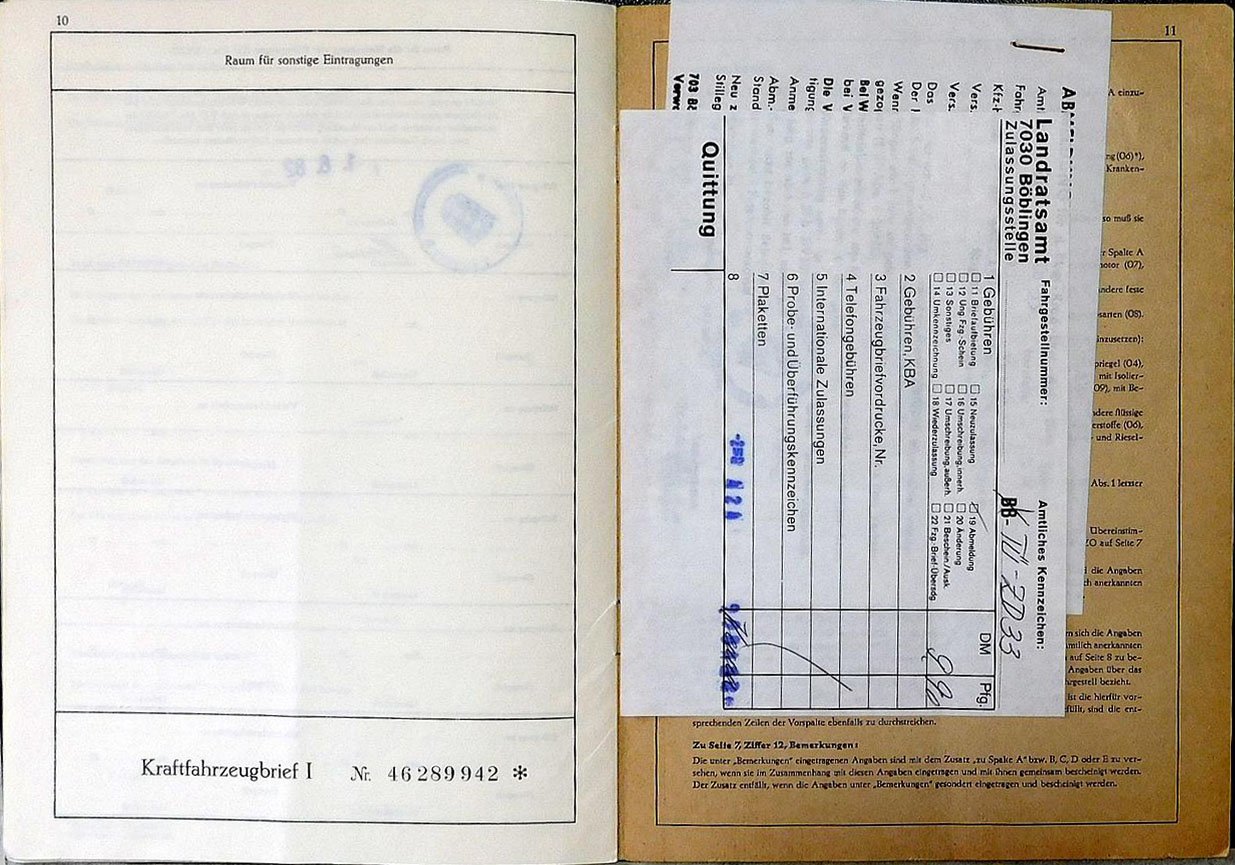 10
Raum für sonstige Eintragungen
1 6 82
Kraftfahrzeugbrief I Nr. 46 289 942 *
11
Landratsamt
7030 Böblingen
Zulassungsstelle
Fahrgestellnummer:
Amtliches Kennzeichen:
BB-
Quittung
DM Pfg.
1 Gebühren
11 Briefaufbietung 15 Neuzulassung 19 Abmeldung
12 Ung. Fzg.-Schein 16 Umschreibung, innerh. 20 Änderung
13 Sonstiges 17 Umschreibung, außerh. 21 Beschein./Ausk.
14 Umkennzeichnung 18 Wiederzulassung 22 Frzg.-Brief-Übersdg.
2 Gebühren, KBA
3 Fahrzeugbriefvordrucke, Nr.
4 Telefongebühren
5 Internationale Zulassungen
6 Probe- und Überführungskennzeichen
7 Plaketten
8
Amt
Fahr
Kfz-
Vers.
Vers.
Das
Der
Wenn
gezo
Bei W
bei V
Die V
tigung
Anme
Abm.
Stand
Neu z
Stilleg
A einzu-
ng (06)*),
Kranken-
so muß sie
r Spalte A
otor (07),
ndere feste
sarten (08).
inzusetzen):
priegel (04),
mit Isolier-
09), mit Be-
dere flüssige
erstoffe (06),
und Riesel-
Abs. 1 letzter
Übereinstim-
ZO auf Seite 7
die Angaben
ch anerkannten
n sich die Angaben
mtlich anerkannten
auf Seite 8 zu be-
Angaben über das
hrgestell bezieht.
ist die hierfür vor-
füllt, sind die ent-
sprechenden Zeilen der Vorspalte ebenfalls zu durchstreichen.
Zu Seite 7, Ziffer 12, Bemerkungen:
Die unter „Bemerkungen" eingetragenen Angaben sind mit dem Zusatz „zu Spalte A" bzw. B, C, D oder E zu ver-
sehen, wenn sie im Zusammenhang mit diesen Angaben eingetragen und mit ihnen gemeinsam bescheinigt werden.
Der Zusatz entfällt, wenn die Angaben unter „Bemerkungen" gesondert eingetragen und bescheinigt werden.